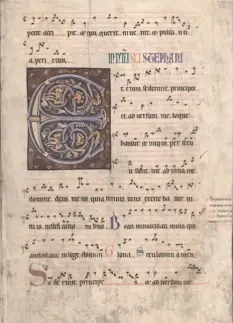 petit acci pit. et qui querit in ue nit. et pulsa n ti
a peri etur. SCI STEPHANI
E t enim sederunt principes
et aduersum me loque
bantur et iniqui per secu
ti sunt me ad iuua me
domine deus me us quia seruus tuus exerce ba tur in
tu is iustifi catio ni bus B eati inmaculati in uia qui
ambulant in lege domini G loria. S eculorum a men.
S e de runt principes et aduersum me